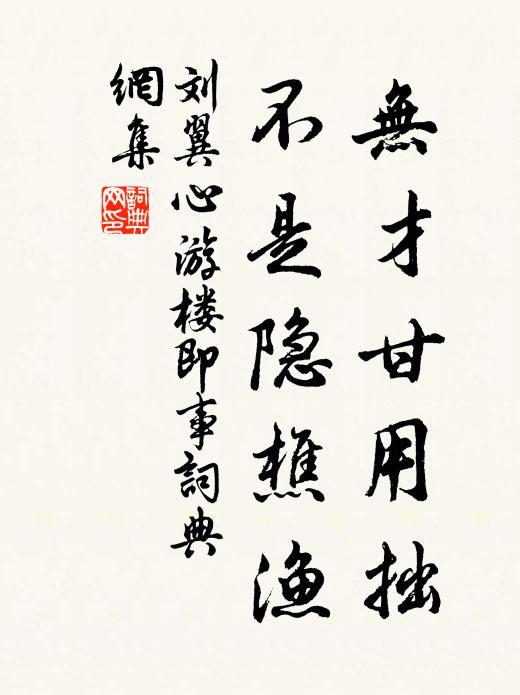 無才甘用拙
不是隐樵渔
刘翼心游楼即事詞典
網集
詞典
网印